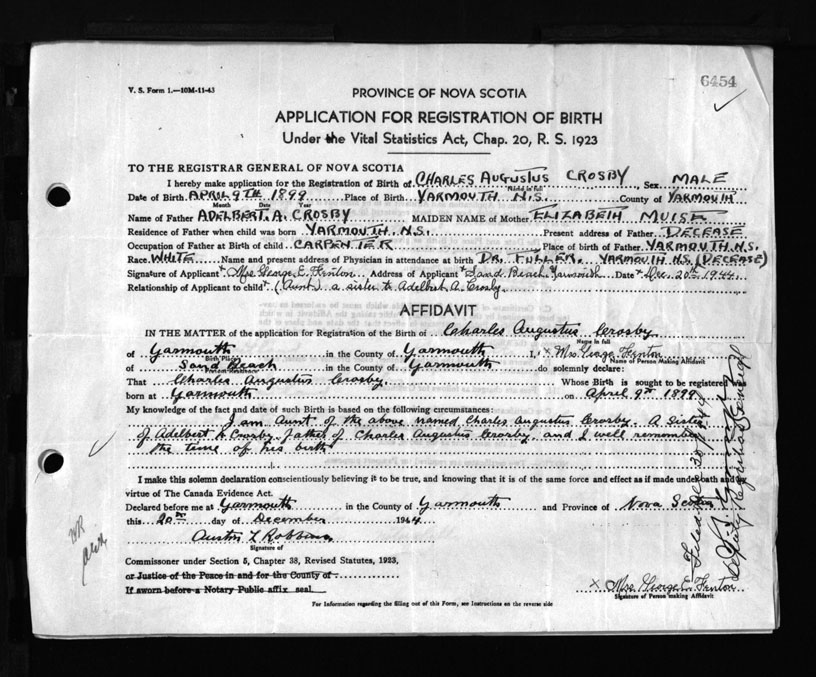 6454
V. S. Form 1.—10M-11-43
PROVINCE OF NOVA SCOTIA
APPLICATION FOR REGISTRATION OF BIRTH
Under the Vital Statistics Act, Chap. 20, R. S. 1923
TO THE REGISTRAR GENERAL OF NOVA SCOTIA
I hereby make application for the Registration of Birth of CHARLES AUGUSTUS CROSBY, Sex MALE
Name in full
Date of Birth APRIL 9TH 1899 Place of Birth YARMOUTH N.S. County of YARMOUTH
Month Date Year
Name of Father ADELBERT. A. CROSBY MAIDEN NAME of Mother ELIZABETH MUISE
Residence of Father when child was born YARMOUTH. N.S. Present address of Father DECEASE
Occupation of Father at Birth of child CARPENTER Place of Birth of Father YARMOUTH. N.S.
Race WHITE Name and present address of Physician in attendance at birth DR. FULLER. YARMOUTH N.S. (DECEASE)
Signature of Applicant x Mrs. George E. Fenton Address of Applicant Sand Beach Yarmouth Date Dec. 20th 1944
Relationship of Applicant to child (Aunt) a sister to Adelbert A. Crosby
AFFIDAVIT
IN THE MATTER of the application for Registration of the Birth of Charles Augustus Crosby
Name in full
of Yarmouth in the County of Yarmouth I, x Mrs. George Fenton
Birth Place Name of Person Making Affidavit
of Sand Beach in the County of Yarmouth do solemnly declare:
Present Residence
That Charles Augustus Crosby Whose Birth is sought to be registered was
born at Yarmouth on April 9th 1899
My knowledge of the fact and date of such Birth is based on the following circumstances:
I am Aunt of the above named Charles Augustus Crosby. A Sister
of Adelbert A Crosby. father of Charles Augustus Crosby. and I well remember
the time of his birth
I make this solemn declaration conscientiously believing it to be true, and knowing that it is of the same force and effect as if made under oath and by
virtue of The Canada Evidence Act.
Declared before me at Yarmouth in the County of Yarmouth and Province of Nova Scotia
this 20th day of December 1944
Austin L Robbins
Signature of
Commissoner under Section 5, Chapter 38, Revised Statutes, 1923,
or Justice of the Peace in and for the County of
If sworn before a Notary Public affix seal
x Mrs. George E. Fenton
Signature of Person making Affidavit
For Information regarding the filling out of this Form, see Instructions on the reverse side
Filed Dec 20/1944
Deputy Registrar General